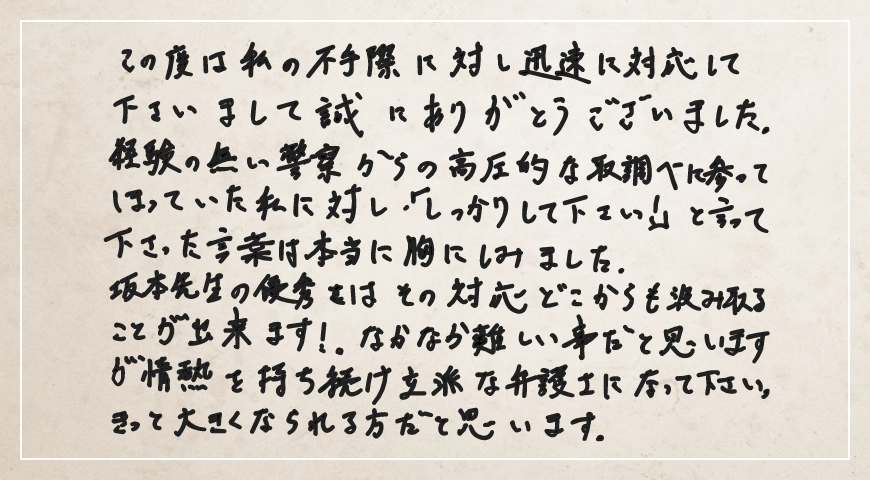 この度は私の不手際に対し迅速に対応して
下さいまして誠にありがとうございました。
経験の無い警察からの高圧的な取調べに参って
いた私に対し「しっかりして下さい!」と言って
下さった言葉は本当に胸にしみました。
坂本先生の優秀さはその対応どこからも汲み取る
ことが出来ます!。なかなか難しい事だと思います
が情熱を持ち続け立派な弁護士になって下さい。
きっと大きくなられる方だと思います。